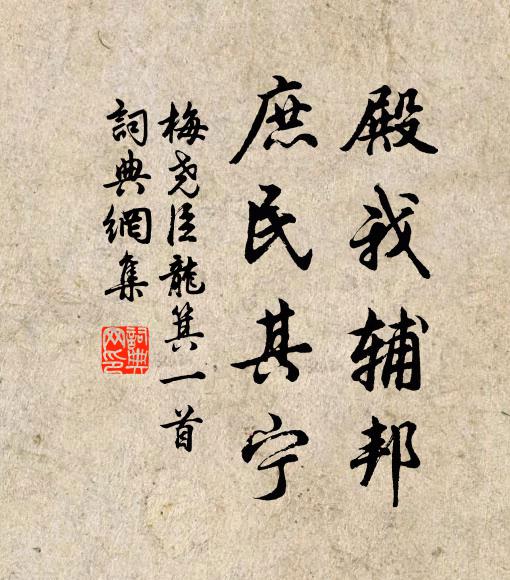 殿我辅邦
庶民其宁
梅尧臣龍箕一首
詞典網集
詞典网印